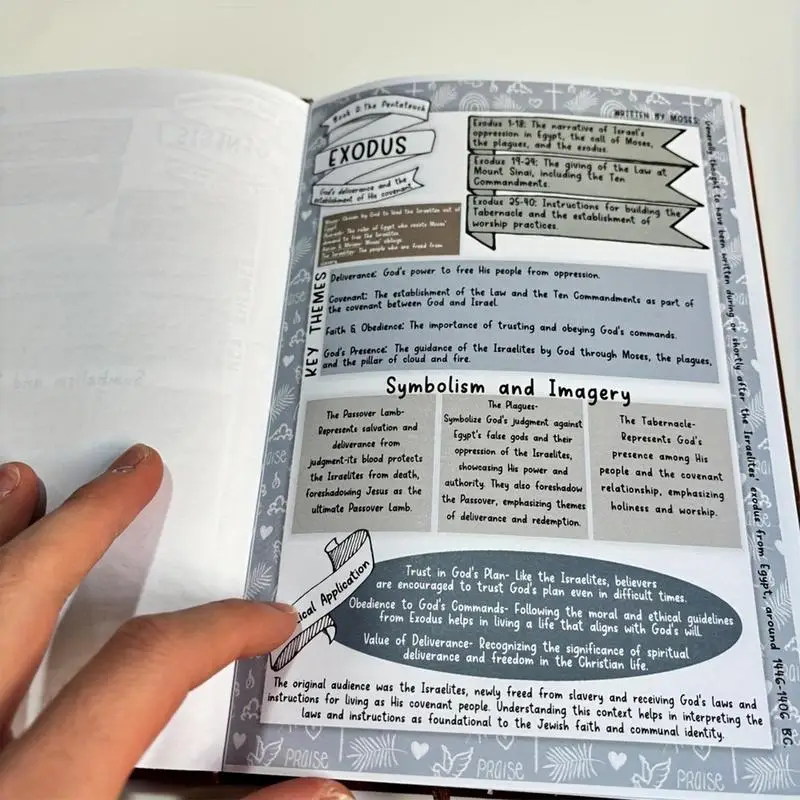 Book 2: The Pentateuch
EXODUS
God's deliverance and the
establishment of His covenant.
WRITTEN BY MOSES:
Generally thought to have been written during or shortly after the Israelites' exodus from Egypt, around 1446-1406 BC
Exodus 1-18: The narrative of Israel's
oppression in Egypt, the call of Moses,
the plagues, and the exodus.
Exodus 19-24: The giving of the Law at
Mount Sinai, including the Ten
Commandments.
Exodus 25-40: Instructions for building the
Tabernacle and the establishment of
worship practices.
Moses: Chosen by God to lead the Israelites out of
Egypt
Pharaoh: The ruler of Egypt who resists Moses'
demand to free the Israelites
Aaron & Miriam: Moses' siblings
The Israelites: The people who are freed from
slavery
KEY THEMES
Deliverance: God's power to free His people from oppression.
Covenant: The establishment of the Law and the Ten Commandments as part of
the covenant between God and Israel.
Faith & Obedience: The importance of trusting and obeying God's commands.
God's Presence: The guidance of the Israelites by God through Moses, the plagues,
and the pillar of cloud and fire.
Symbolism and Imagery
The Passover Lamb-
Represents salvation and
deliverance from
judgment-its blood protects
the Israelites from death,
foreshadowing Jesus as the
ultimate Passover Lamb.
The Plagues-
Symbolize God's judgment against
Egypt's false gods and their
oppression of the Israelites,
showcasing His power and
authority. They also foreshadow
the Passover, emphasizing themes
of deliverance and redemption.
The Tabernacle-
Represents God's
presence among His
people and the covenant
relationship, emphasizing
holiness and worship.
ical Application
Trust in God's Plan- Like the Israelites, believers
are encouraged to trust God's plan even in difficult times.
Obedience to God's Commands- Following the moral and ethical guidelines
from Exodus helps in living a life that aligns with God's will.
Value of Deliverance- Recognizing the significance of spiritual
deliverance and freedom in the Christian life.
The original audience was the Israelites, newly freed from slavery and receiving God's laws and
instructions for living as His covenant people. Understanding this context helps in interpreting the
laws and instructions as foundational to the Jewish faith and communal identity.
PRAISE
PRAISE
PRAISE